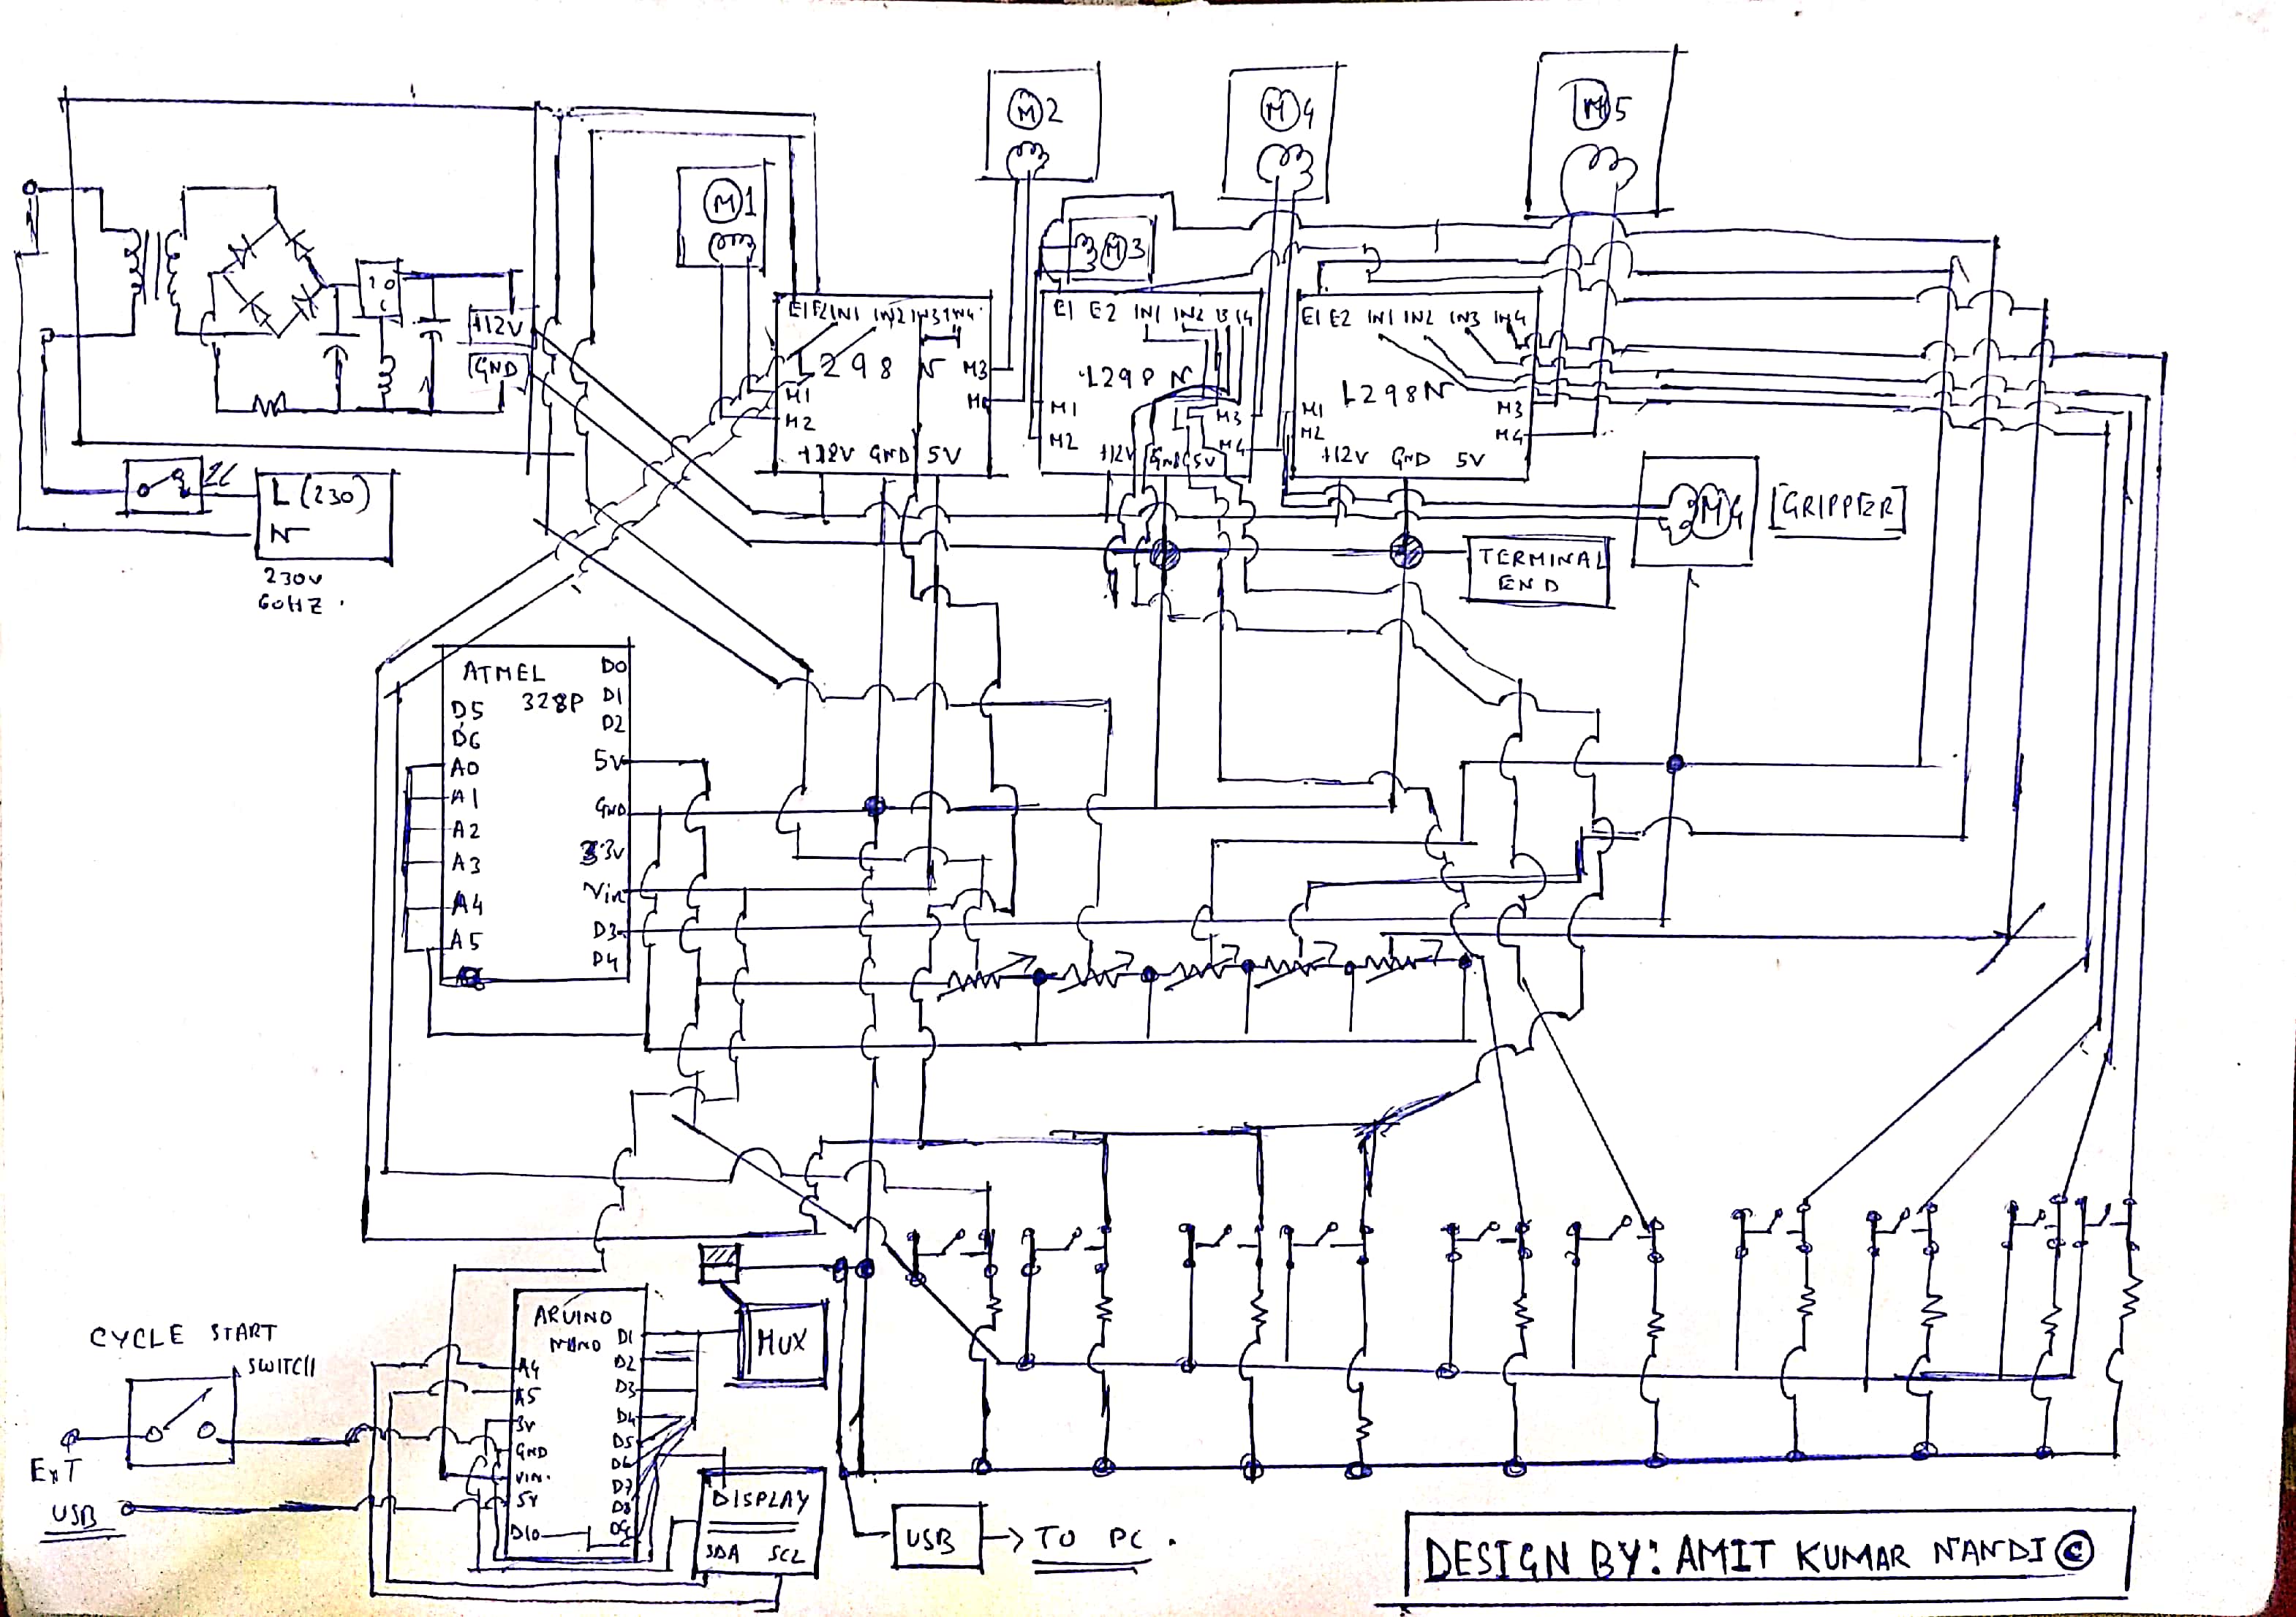 M2
M4
M5
M1
M3
+12V
GND
E1 E2 IN1 IN2 IN3 IN4
L298 N
M3
M1
M2
+12V GND 5V
E1 E2 IN1 IN2 I3 I4
L298 N
M1
M2
M3
M4
+12V GND 5V
E1 E2 IN1 IN2 IN3 IN4
L298N
M1
M2
M3
M4
+12V GND 5V
L (230)
N
230V
60HZ.
M4
[GRIPPER]
TERMINAL
END
ATMEL
328P
D0
D1
D2
D5
D6
5V
A0
A1
GND
A2
3.3V
A3
Vin
A4
D3
A5
D4
CYCLE START
SWITCH
EXT
USB
ARUINO
NANO
D1
D2
A4
D3
A5
D4
3V
D5
GND
D6
VIN.
D7
5V
D8
D10
D9
MUX
DISPLAY
SDA SCL
USB → TO PC.
DESIGN BY: AMIT KUMAR NANDI ©